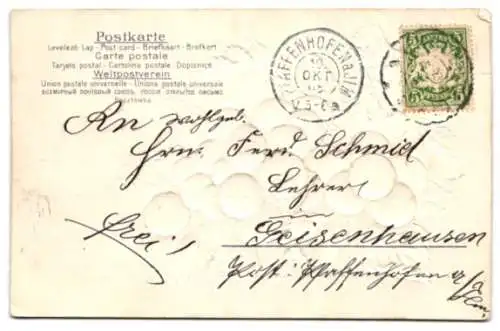 Postkarte
Levelezö-Lap - Post card - Briefkaart - Brefkort
Carte postale
Tarjeta postal - Cartolina postale - Dopisnice
Weltpostverein
Union postale universelle - Unione postale universale
An wohlgeb.
Hrn. Ferd. Schmid
Lehrer
in
Geisenhausen
frei!
Post: Pfaffenhofen a/Ilm.
PFAFFENHOFEN a. ILM
OKT
5